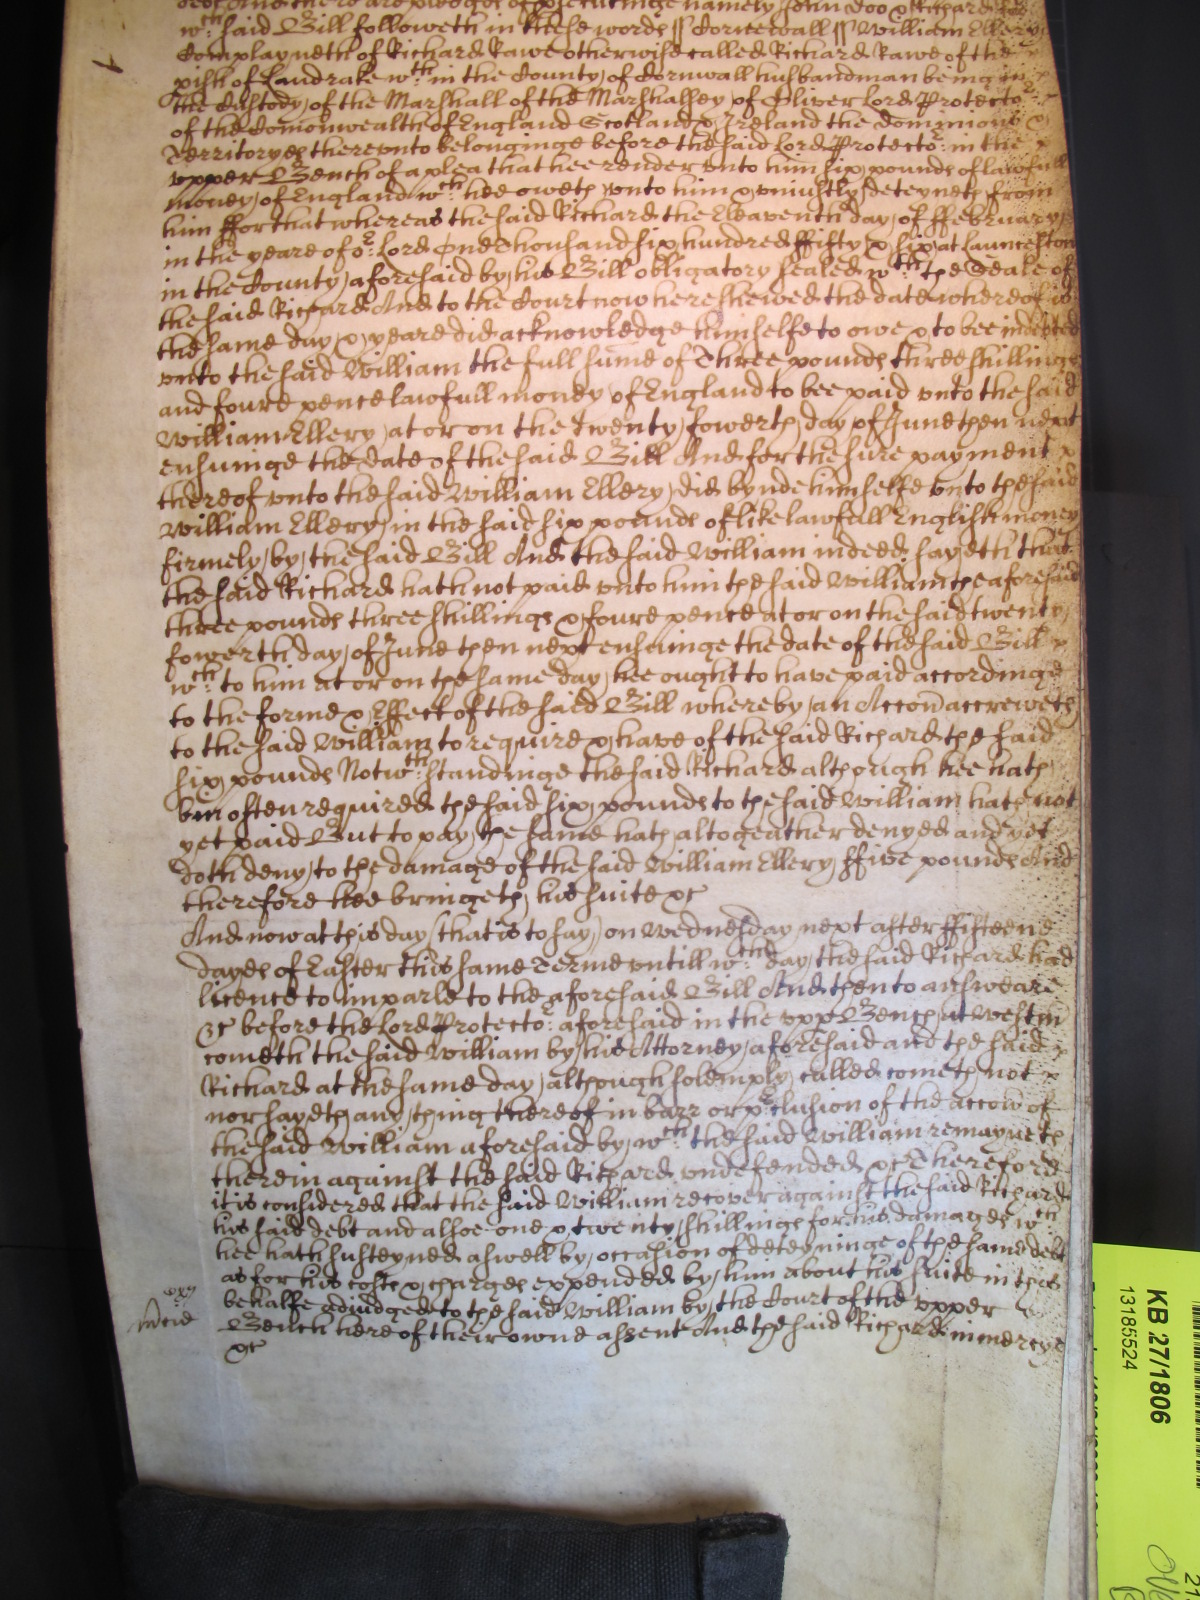 debt And there are pledges of prosecutinge namely John Doo & Richard Roo
wch said Bill followeth in these words ss Cornewall ss William Ellery
Complayneth of Richard Rawe otherwise called Richard Rawe of the
pish of Landrake wth in the County of Cornwall husbandman being in
the Custody of the Marshall of the Marshalsey of Oliver Lord Protector
of the Comonwealth of England Scotland & Ireland the dominions &
Territoryes thereunto belonginge before the said Lord Protector in the
upper Bench of a plea that hee render unto him six pounds of lawfull
money of England wch hee oweth unto him & uniustly deteyneth from
him ffor that whereas the said Richard the Eleaventh day of ffebruary
in the yeare of or Lord One thousand six hundred ffifty & six at Launceston
in the County aforesaid by his Bill obligatory sealed wth the Seale of
the said Richard And to the Court now here shewed the date whereof is
the same day & yeare did acknowledge himselfe to owe & to bee indebted
unto the said William the full sume of Three pounds three shillings
and foure pence lawfull money of England to bee paid unto the said
William Ellery at or on the Twenty fowerth day of June then next
ensuinge the date of the said Bill And for the sure payment
thereof unto the said William Ellery did bynde himselfe unto the said
William Ellery in the said six pounds of like lawfull English money
firmely by the said Bill And the said William indeed sayeth that
the said Richard hath not paid unto him the said William the aforesaid
three pounds three shillings & foure pence at or on the said twenty
fowerth day of June then next ensuinge the date of the said Bill
wch to him at or on the same day hee ought to have paid accordinge
to the forme & Effect of the said Bill whereby an Accon accreweth
to the said William to require & have of the said Richard the said
six pounds Notwthstandinge the said Richard although hee hath
bin often required the said six pounds to the said William hath not
yet paid But to pay the same hath altogeather denyed and yet
doth deny to the damage of the said William Ellery ffive pounds And
therefore hee bringeth his suite &c
And now at this day (that is to say) on Wednesday next after ffifteene
dayes of Easter this same Terme untill wch day the said Richard had
licence to imparle to the aforesaid Bill And then to answeare
&c before the Lord Protector aforesaid in the upp Bench at Westm
cometh the said William by his Attorney aforesaid and the said
Richard at the same day although solemply called cometh not
nor sayeth any thing thereof in barr or pclusion of the accon of
the said William aforesaid by wch the said William remayneth
therein against the said Richard undefended &c Therefore
it is considered that the said William recover against the said Richard
his said debt and alsoe one & twenty shillings for his damages wch
hee hath susteyned aswell by occasion of deteyninge of the same debt
as for his costs & charges expended by him about his suite in this
behalfe adiudged to the said William by the Court of the upper
Bench here of their owne assent And the said Richard in mercye
&c
KB 27/1806
13185524